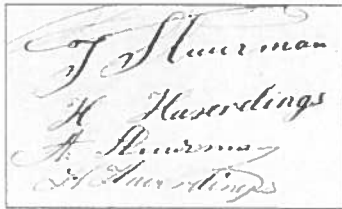 J Stuurman
H Huserdings
A. Stuurman
H Huserdings